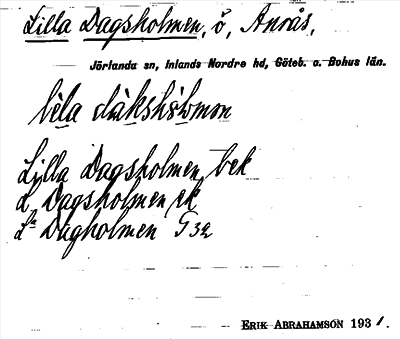 Lilla Dagsholmen, ö, Anrås,
Jörlanda sn, Inlands Nordre hd, Göteb. o. Bohus län.
lìla dàkshòlmən
Lilla Dagsholmen bek
L. Dagsholmen ek
La Dagholmen G32
ERIK ABRAHAMSON 1931.